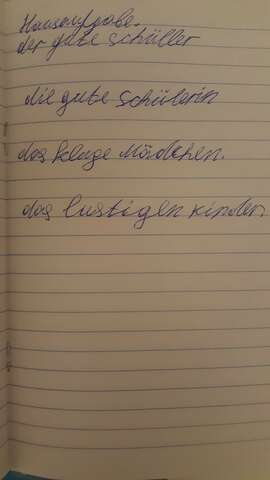 Hausaufgabe.
der gute schüller
die gute schülerin
das kluge Mädchen.
das lustigen kinder.